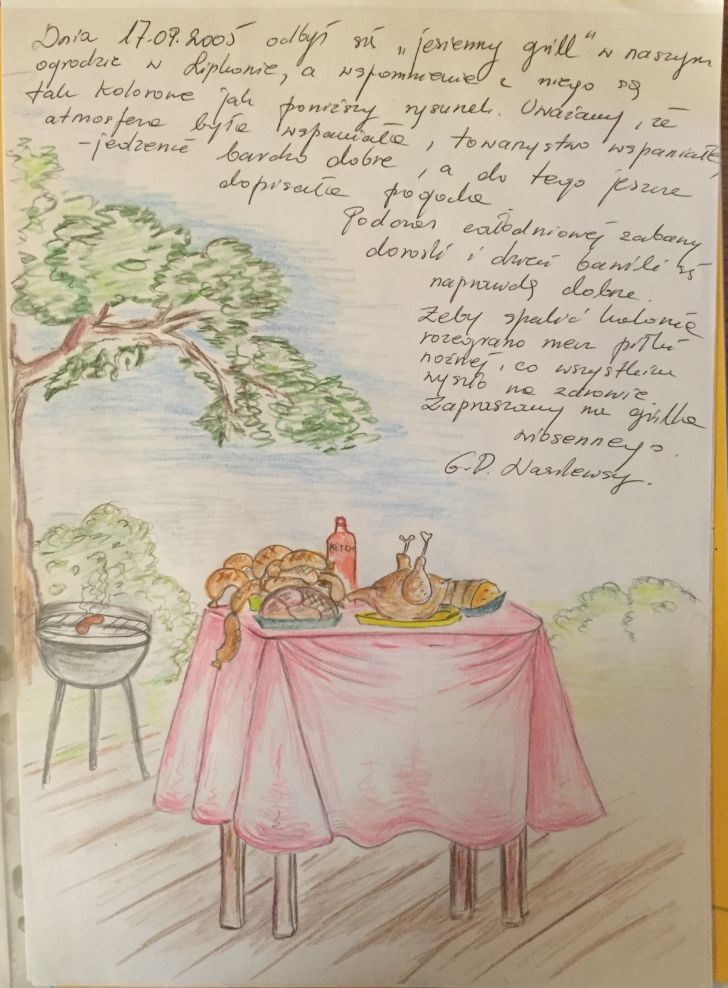 Dnia 17.09.2005 odbył się „jesienny grill" w naszym
ogrodzie w Lipkowie, a wspomnienia z niego są
tak kolorowe jak poniższy rysunek. Uważamy, że
atmosfera była wspaniała, towarzystwo wspaniałe,
- jedzenie bardzo dobre, a do tego jeszcze
dopisała pogoda
Podczas całodniowej zabawy
dorośli i dzieci bawili się
naprawdę dobrze.
Żeby spalić kalorie
rozegrano mecz piłki
nożnej, co wszystkim
wyszło na zdrowie
Zapraszamy na grilla
wiosennego.
G.D. Wasilewscy.
KETCH